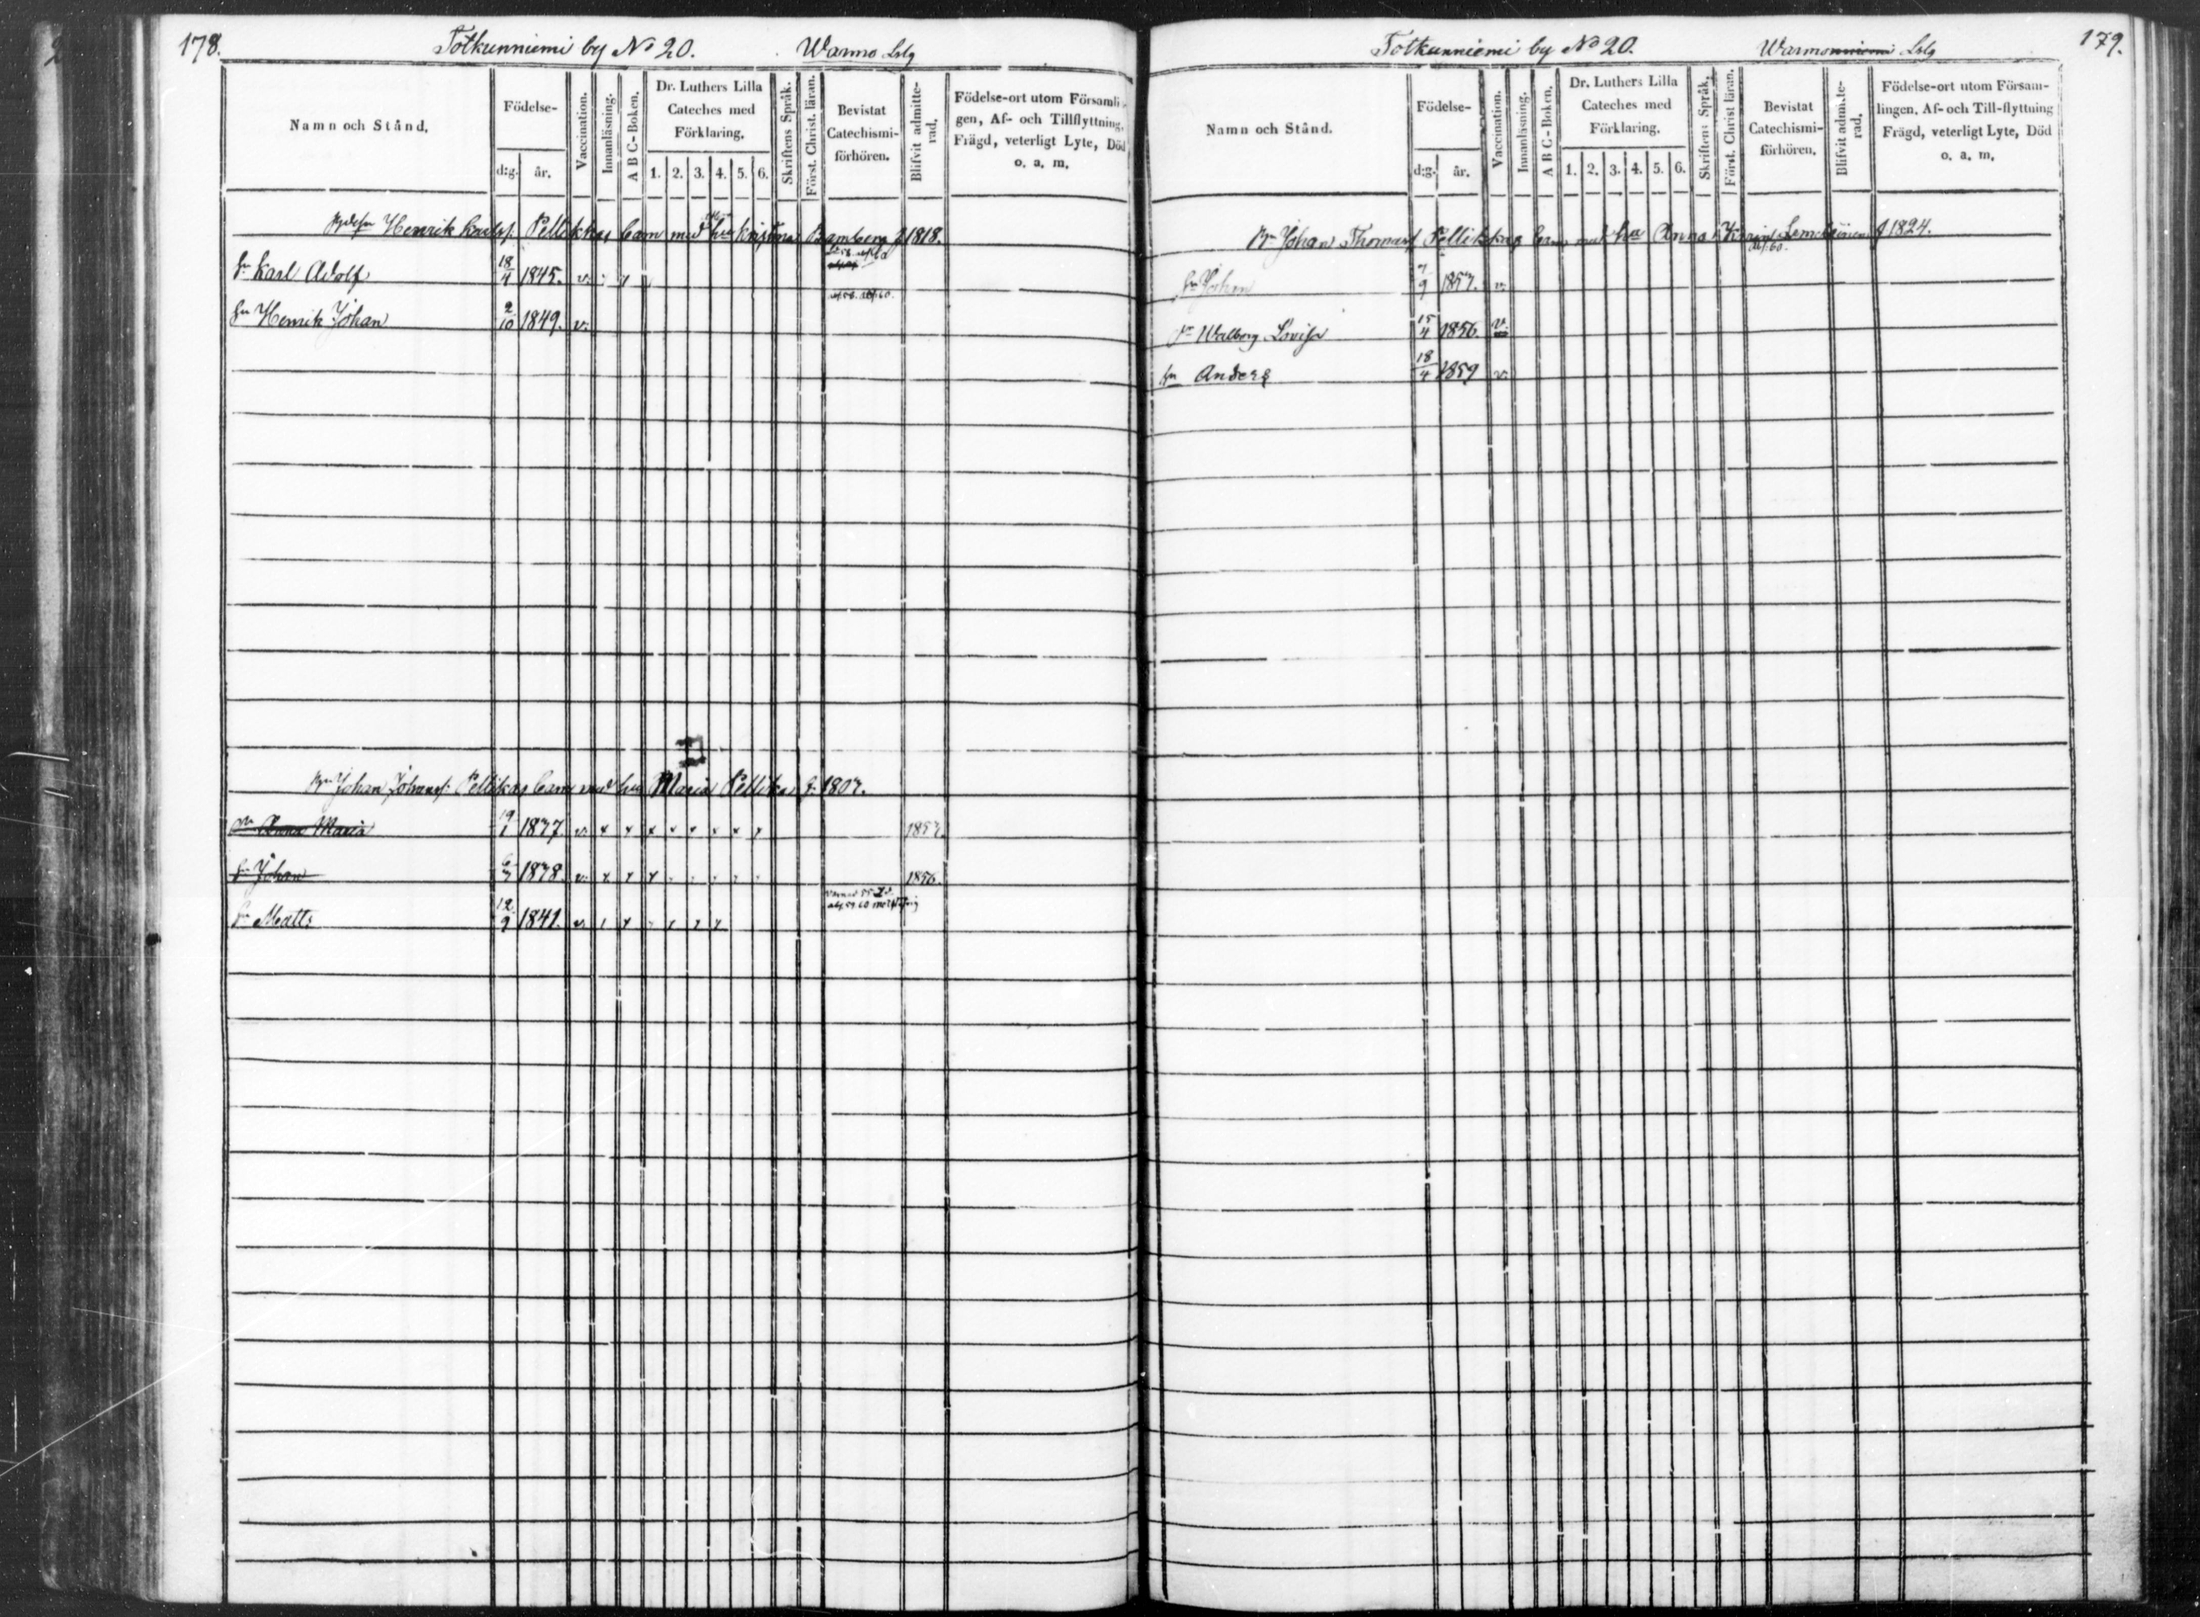 178. Totkunniemi by No 20. Warmo Lslg
Namn och Stånd. Födelse- d:g. år. Vaccination. Innanläsning. A B C-Boken. Dr. Luthers Lilla Cateches med Förklaring. 1. 2. 3. 4. 5. 6. Skriftens Språk. Först. Christ. läran. Bevistat Catechismi-förhören. Blifvit admitte-rad. Födelse-ort utom Församlin-gen, Af- och Tillflyttning, Frägd, veterligt Lyte, Död o. a. m.
Henrik Karlss. Pellikkas barn med hu Kristina Bamberg f. 1818.
Sn Karl Adolf 18/4 1845. v.
Sn Henrik Johan 2/10 1849. v.
Bn Johan Johanss: Pellikas barn med hu Maria Pellikas f. 1807.
Dr Anna Maria 19/1 1837. v. x x x x x x x x 1857.
Sn Johan 1838. v. x x x 1856.
Sn Matts 12/9 1841. v.
179.
Totkunniemi by No 20. Warmoniemi Lslg
Namn och Stånd. Födelse- d:g. år. Vaccination. Innanläsning. A B C-Boken. Dr. Luthers Lilla Cateches med Förklaring. 1. 2. 3. 4. 5. 6. Skriftens Språk. Först. Christ läran. Bevistat Catechismi-förhören. Blifvit admitte-rad. Födelse-ort utom Försam-lingen, Af- och Till-flyttning Frägd, veterligt Lyte, Död o. a. m.
Bn Johan Thomass Pellikkas barn med hu Anna Lemettinen f 1824.
Sn Johan 1857. v.
Dr Walborg Lovisa 15/4 1856. v.
Sn Anders 18/4 1859 v.